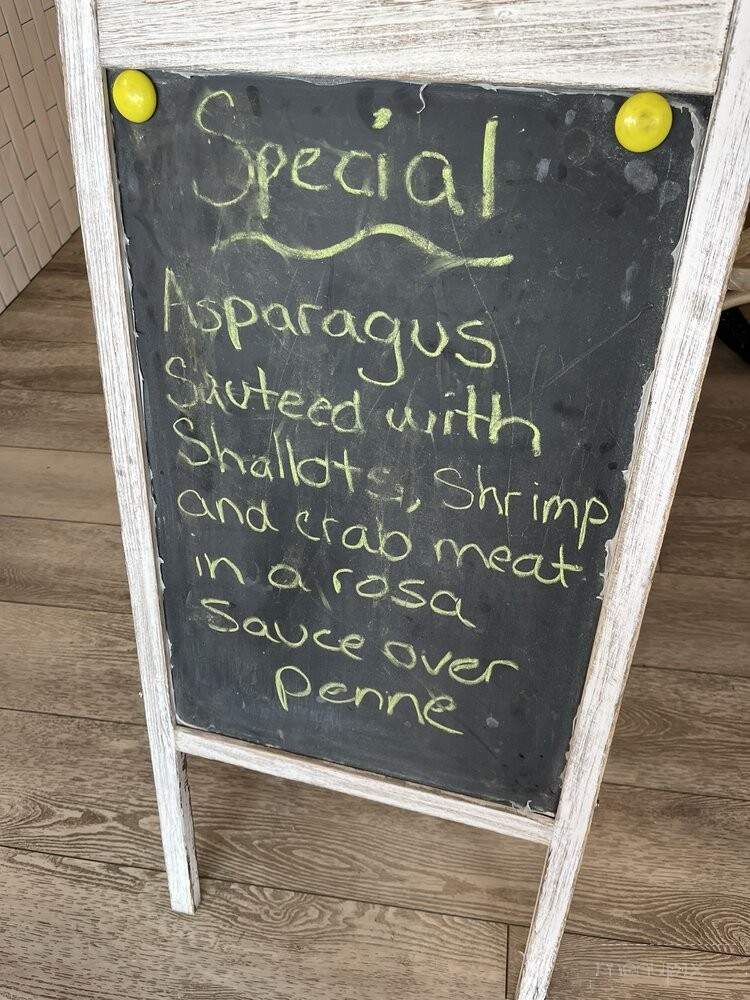 Special
Asparagus
Sauteed with
Shallots, Shrimp
and crab meat
in a rosa
Sauce over
penne
menupix